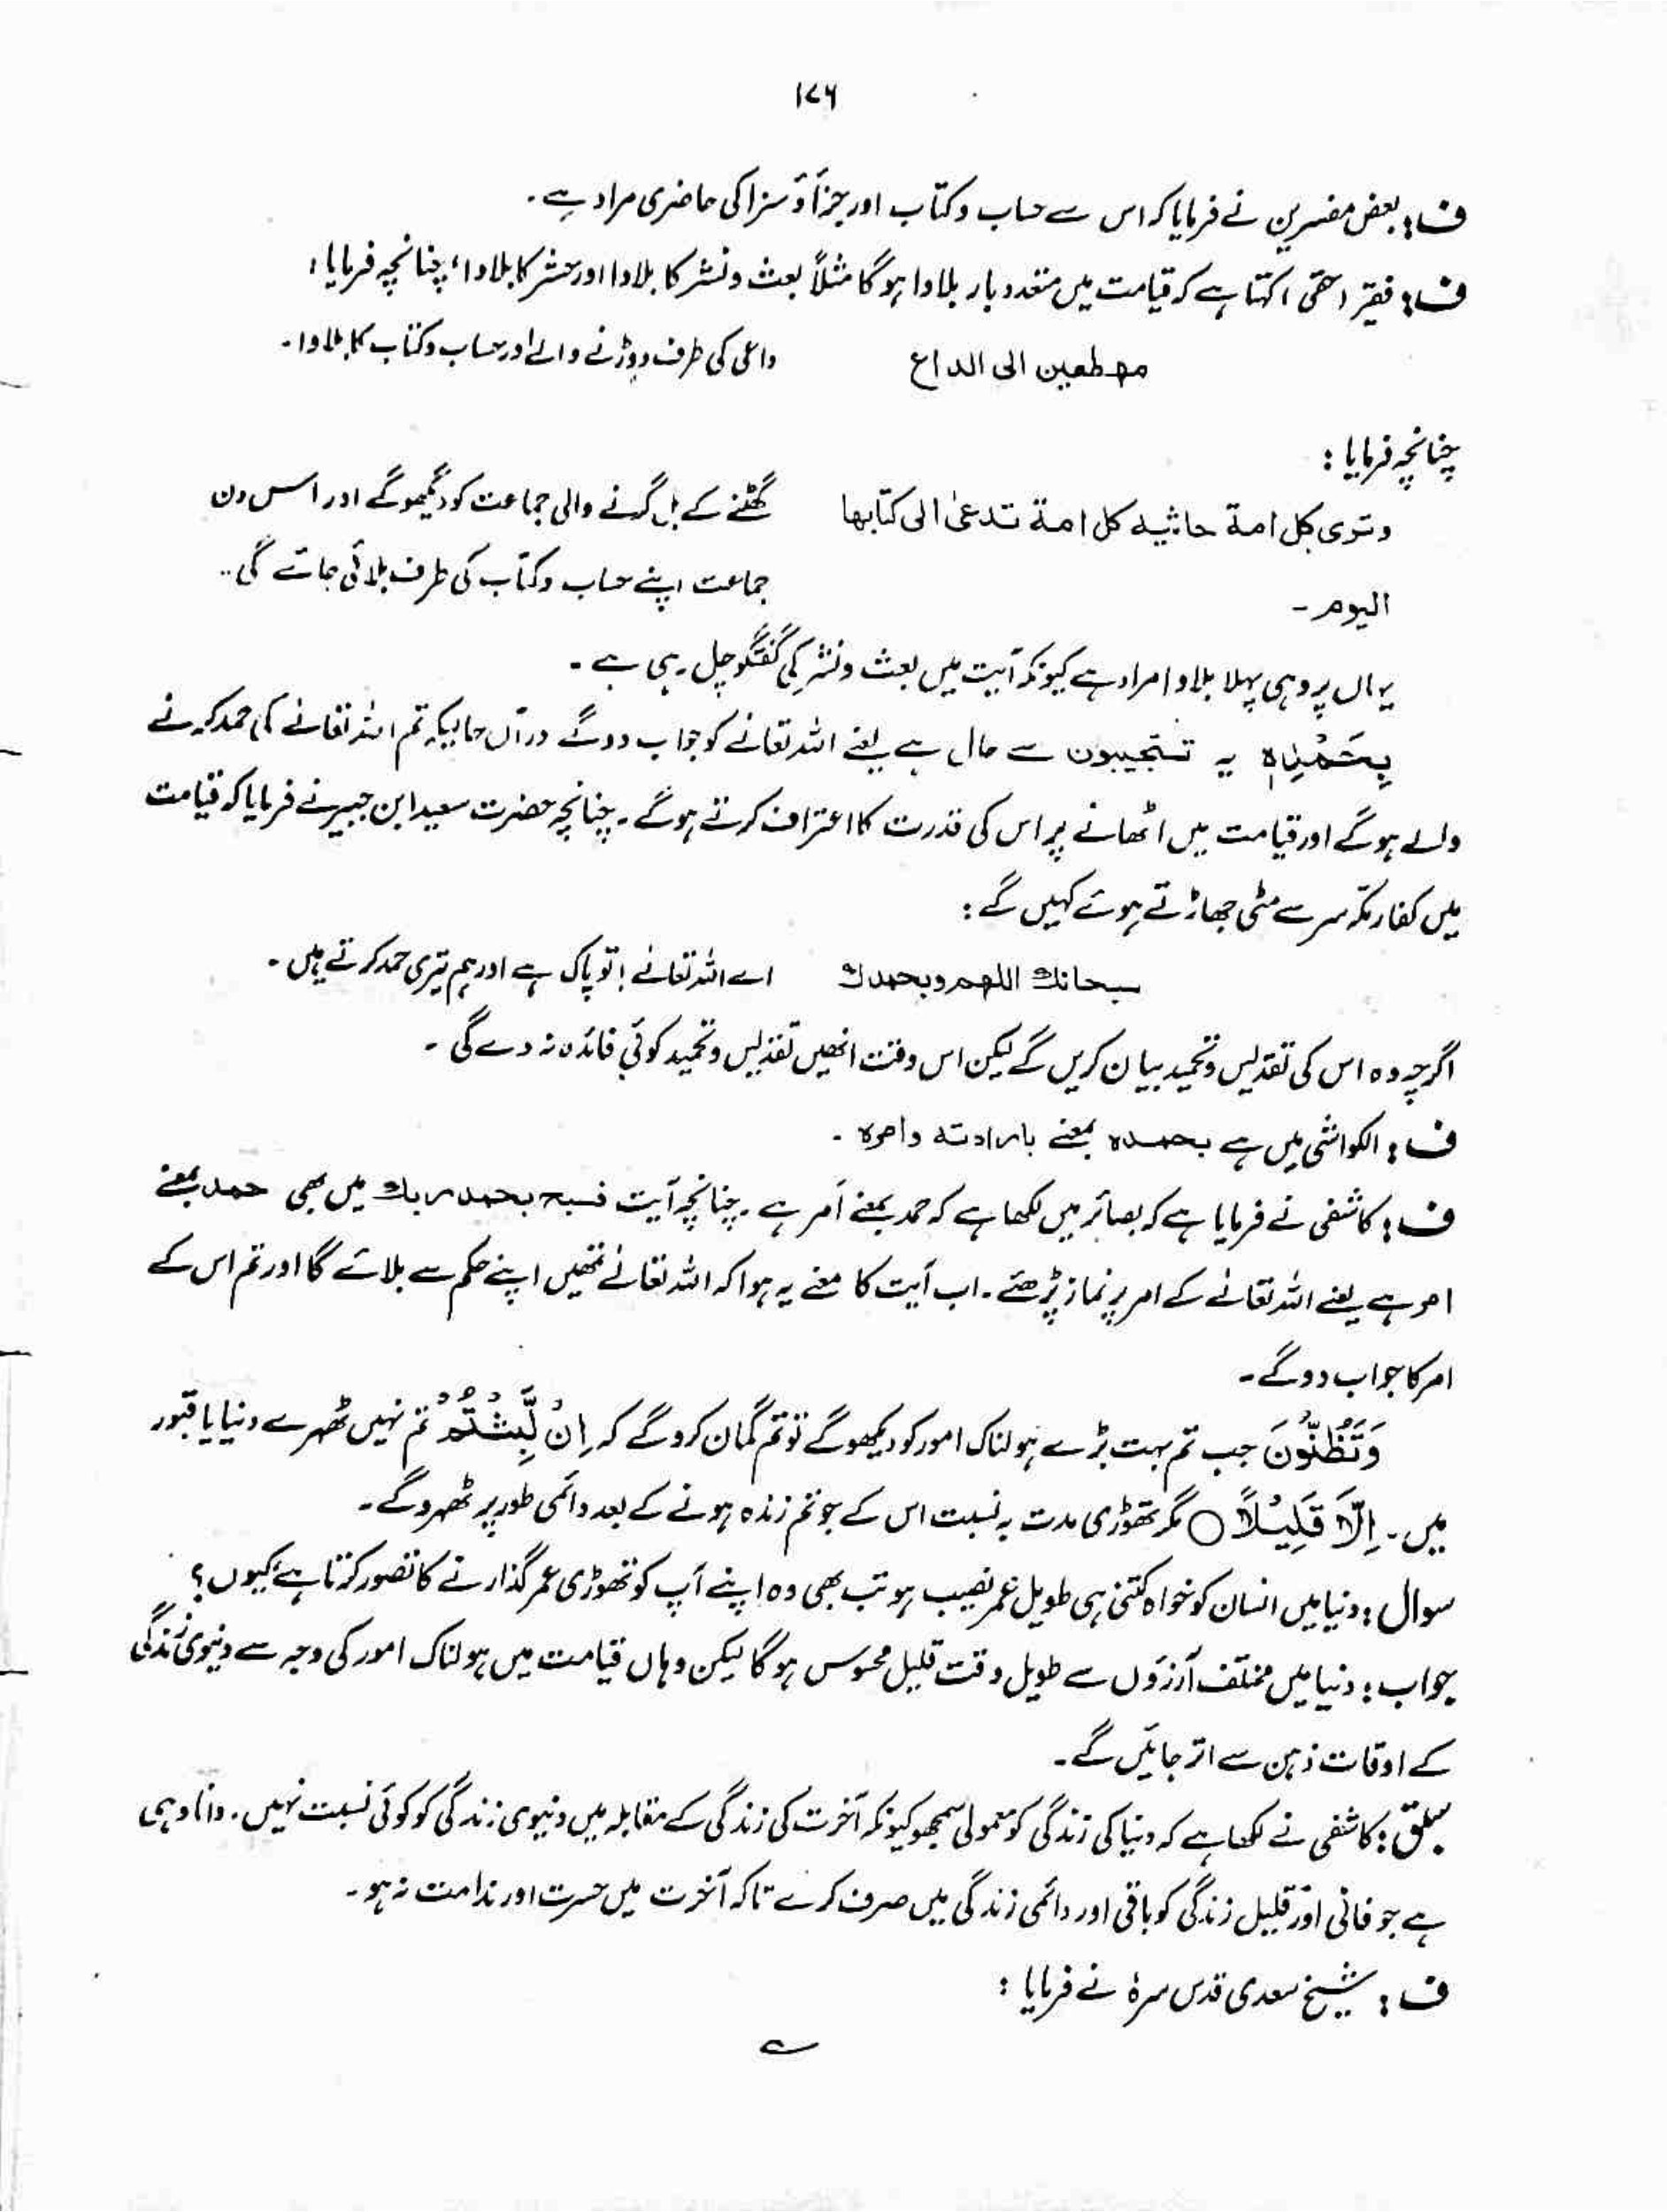 ۱۷۶
ف: بعض مفسرین نے فرمایا کہ اس سے حساب و کتاب اور جزآؤ سزا کی حاضری مراد ہے۔
ف: فقیر (حقی) کہتا ہے کہ قیامت میں متعدد بار بلاوا ہوگا مثلاً بعث و نشر کا بلاوا اور حشر کا بلاوا، چنانچہ فرمایا:
مهطعین الی الداع داعی کی طرف دوڑنے والے اور حساب و کتاب کا بلاوا۔
چنانچہ فرمایا:
وتری کل امة جاثیه کل امة تدعیٰ الی کتابها گھٹنے کے بل گرنے والی جماعت کو دیکھو گے اور اس دن
الیوم۔ جماعت اپنے حساب و کتاب کی طرف بلائی جائے گی۔
یہاں پر وہی پہلا بلاوا مراد ہے کیونکہ آیت میں بعث و نشر کی گفتگو چل رہی ہے۔
بِحَمْدِہٖ یہ تستجیبون سے حال ہے یعنے اللہ تعالےٰ کو جواب دو گے درآں حالیکہ تم اللہ تعالےٰ کی حمد کرنے
والے ہو گے اور قیامت میں اٹھانے پر اس کی قدرت کا اعتراف کرتے ہو گے۔ چنانچہ حضرت سعید ابن جبیر نے فرمایا کہ قیامت
میں کفار مکہ سر سے مٹی جھاڑتے ہوئے کہیں گے:
سبحانك اللهم وبحمدك اے اللہ تعالےٰ! تو پاک ہے اور ہم تیری حمد کرتے ہیں۔
اگرچہ وہ اس کی تقدیس و تحمید بیان کریں گے لیکن اس وقت انھیں تقدیس و تحمید کوئی فائدہ نہ دے گی۔
ف: الکواشی میں ہے بحمدہ بمعنے بارادتہ وامرہ۔
ف: کاشفی نے فرمایا ہے کہ بصائر میں لکھا ہے کہ حمد بمعنے اَمر ہے۔ چنانچہ آیت فسبح بحمد ربك میں بھی حمد بمعنے
امر ہے یعنے اللہ تعالےٰ کے امر پر نماز پڑھئے۔ اب آیت کا معنے یہ ہوا کہ اللہ تعالےٰ تمھیں اپنے حکم سے بلائے گا اور تم اس کے
امر کا جواب دو گے۔
وَتَظُنُّوْنَ جب تم بہت بڑے ہولناک امور کو دیکھو گے تو تم گمان کرو گے کہ اِنْ لَّبِثْتُمْ تم نہیں ٹھہرے دنیا یا قبور
میں۔ اِلَّا قَلِیْلًا ○ مگر تھوڑی مدت بہ نسبت اس کے جو تم زندہ ہونے کے بعد دائمی طور پر ٹھہرو گے۔
سوال: دنیا میں انسان کو خواہ کتنی ہی طویل عمر نصیب ہو تب بھی وہ اپنے آپ کو تھوڑی عمر گذارنے کا تصور کرتا ہے کیوں؟
جواب: دنیا میں مختلف آرزوں سے طویل وقت قلیل محسوس ہوگا لیکن وہاں قیامت میں ہولناک امور کی وجہ سے دنیوی زندگی
کے اوقات ذہن سے اتر جائیں گے۔
سبق: کاشفی نے لکھا ہے کہ دنیا کی زندگی کو معمولی سمجھو کیونکہ آخرت کی زندگی کے مقابلہ میں دنیوی زندگی کو کوئی نسبت نہیں۔ دانا وہی
ہے جو فانی اور قلیل زندگی کو باقی اور دائمی زندگی میں صرف کرے تاکہ آخرت میں حسرت اور ندامت نہ ہو۔
ف: شیخ سعدی قدس سرہٗ نے فرمایا:
ے